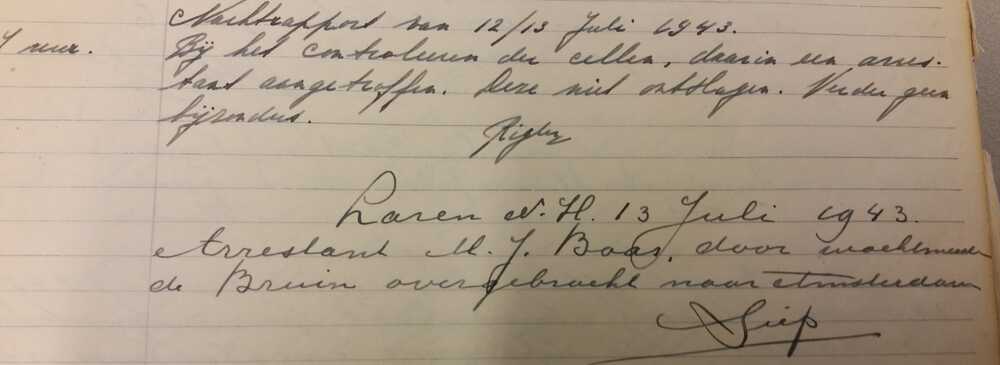 Nachtrapport van 12/13 Juli 1943.
7 uur. Bij het controleeren der cellen, daarin een arres-
tant aangetroffen. Deze niet ontslagen. Verder geen
bijzonders.
Laren N.H. 13 Juli 1943.
Arrestant M. J. Boas, door wachtmeester
de Bruin overgebracht naar Amsterdam